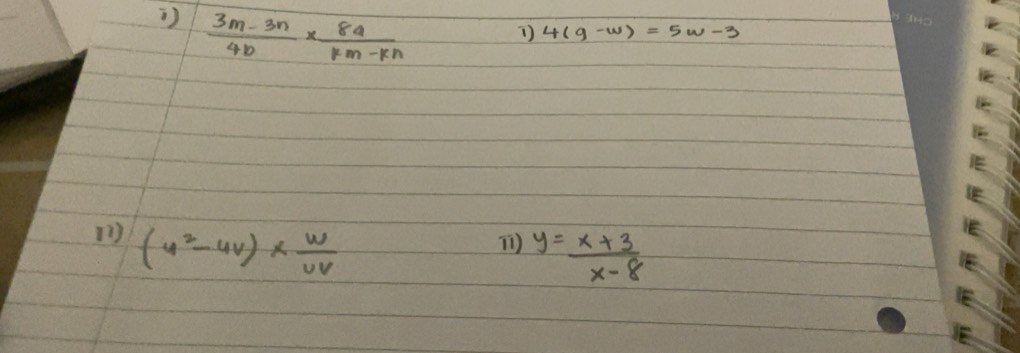 i) \frac{3m - 3n}{4b} × \frac{8a}{km - kn}
i) 4(g - w) = 5w - 3
ii) (u² - uv) × \frac{w}{uv}
ii) y = \frac{x + 3}{x - 8}